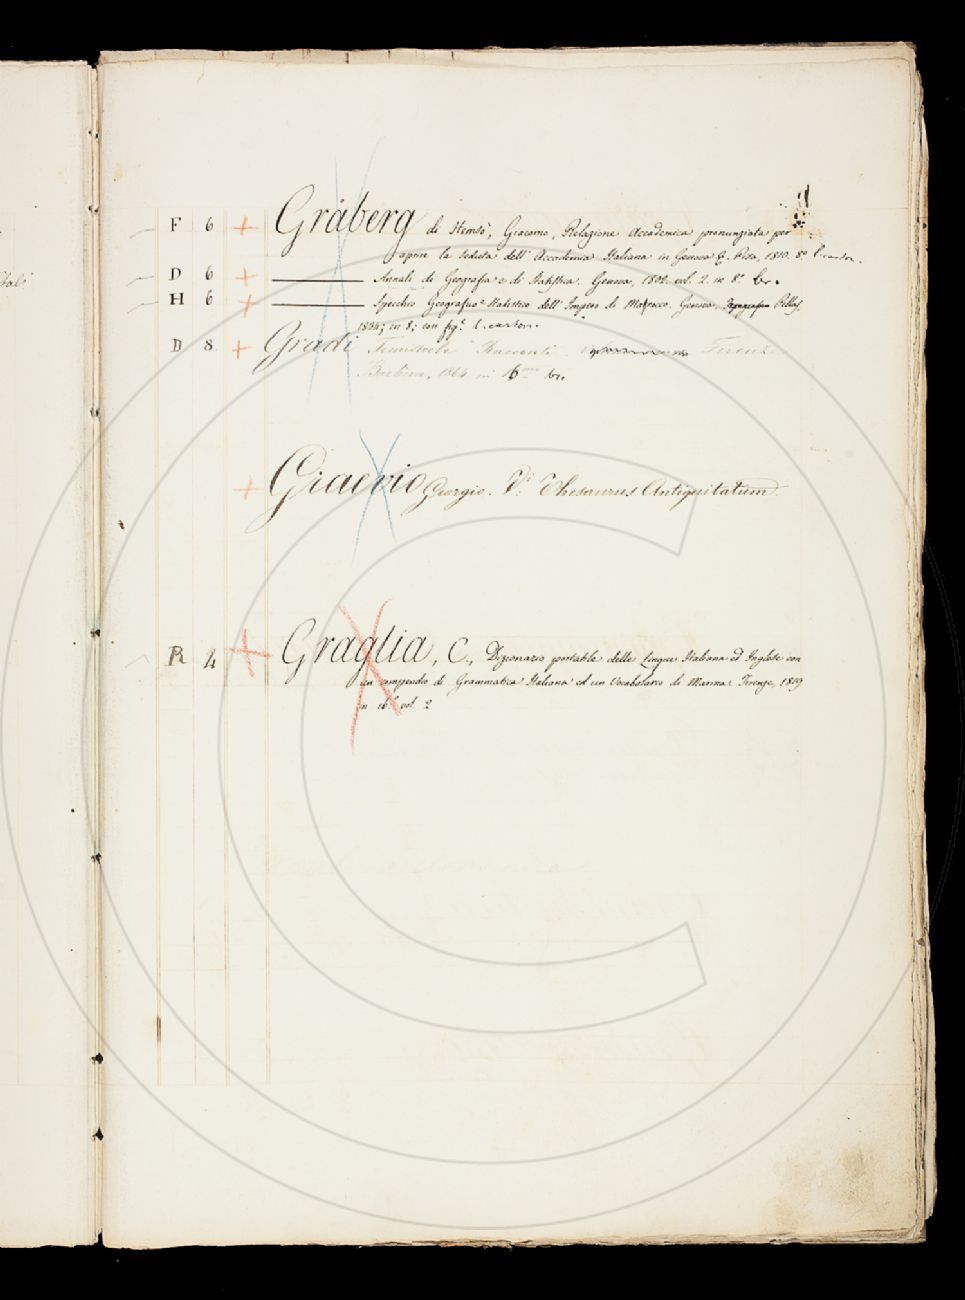 F 6 + Gräberg di Hemsö, Giacomo, Relazione Accademica pronunziata per
aprire la seduta dell' Accademia Italiana in Genova &. Pisa, 1810. 8° l. carton.
D 6 + ——— Annali di Geografia e di Statistica. Genova, 1802. vol. 2. in 8.° br.
H 6 + ——— Specchio Geografico e Statistico dell' Impero di Marocco. Genova, Tipografia Pellas,
1834; in 8; con fig.e l. carton.
D 8 + Gradi Temistocle Racconti Firenze
Barbèra, 1864 in 16mo br.
+ Graevio Giorgio. V.i Thesaurus Antiquitatum.
R 4 + Graglia, C., Dizionario portabile delle Lingue Italiana ed Inglese con
un compendio di Grammatica Italiana ed un Vocabolario di Marina. Firenze, 1819
in 16.° vol 2